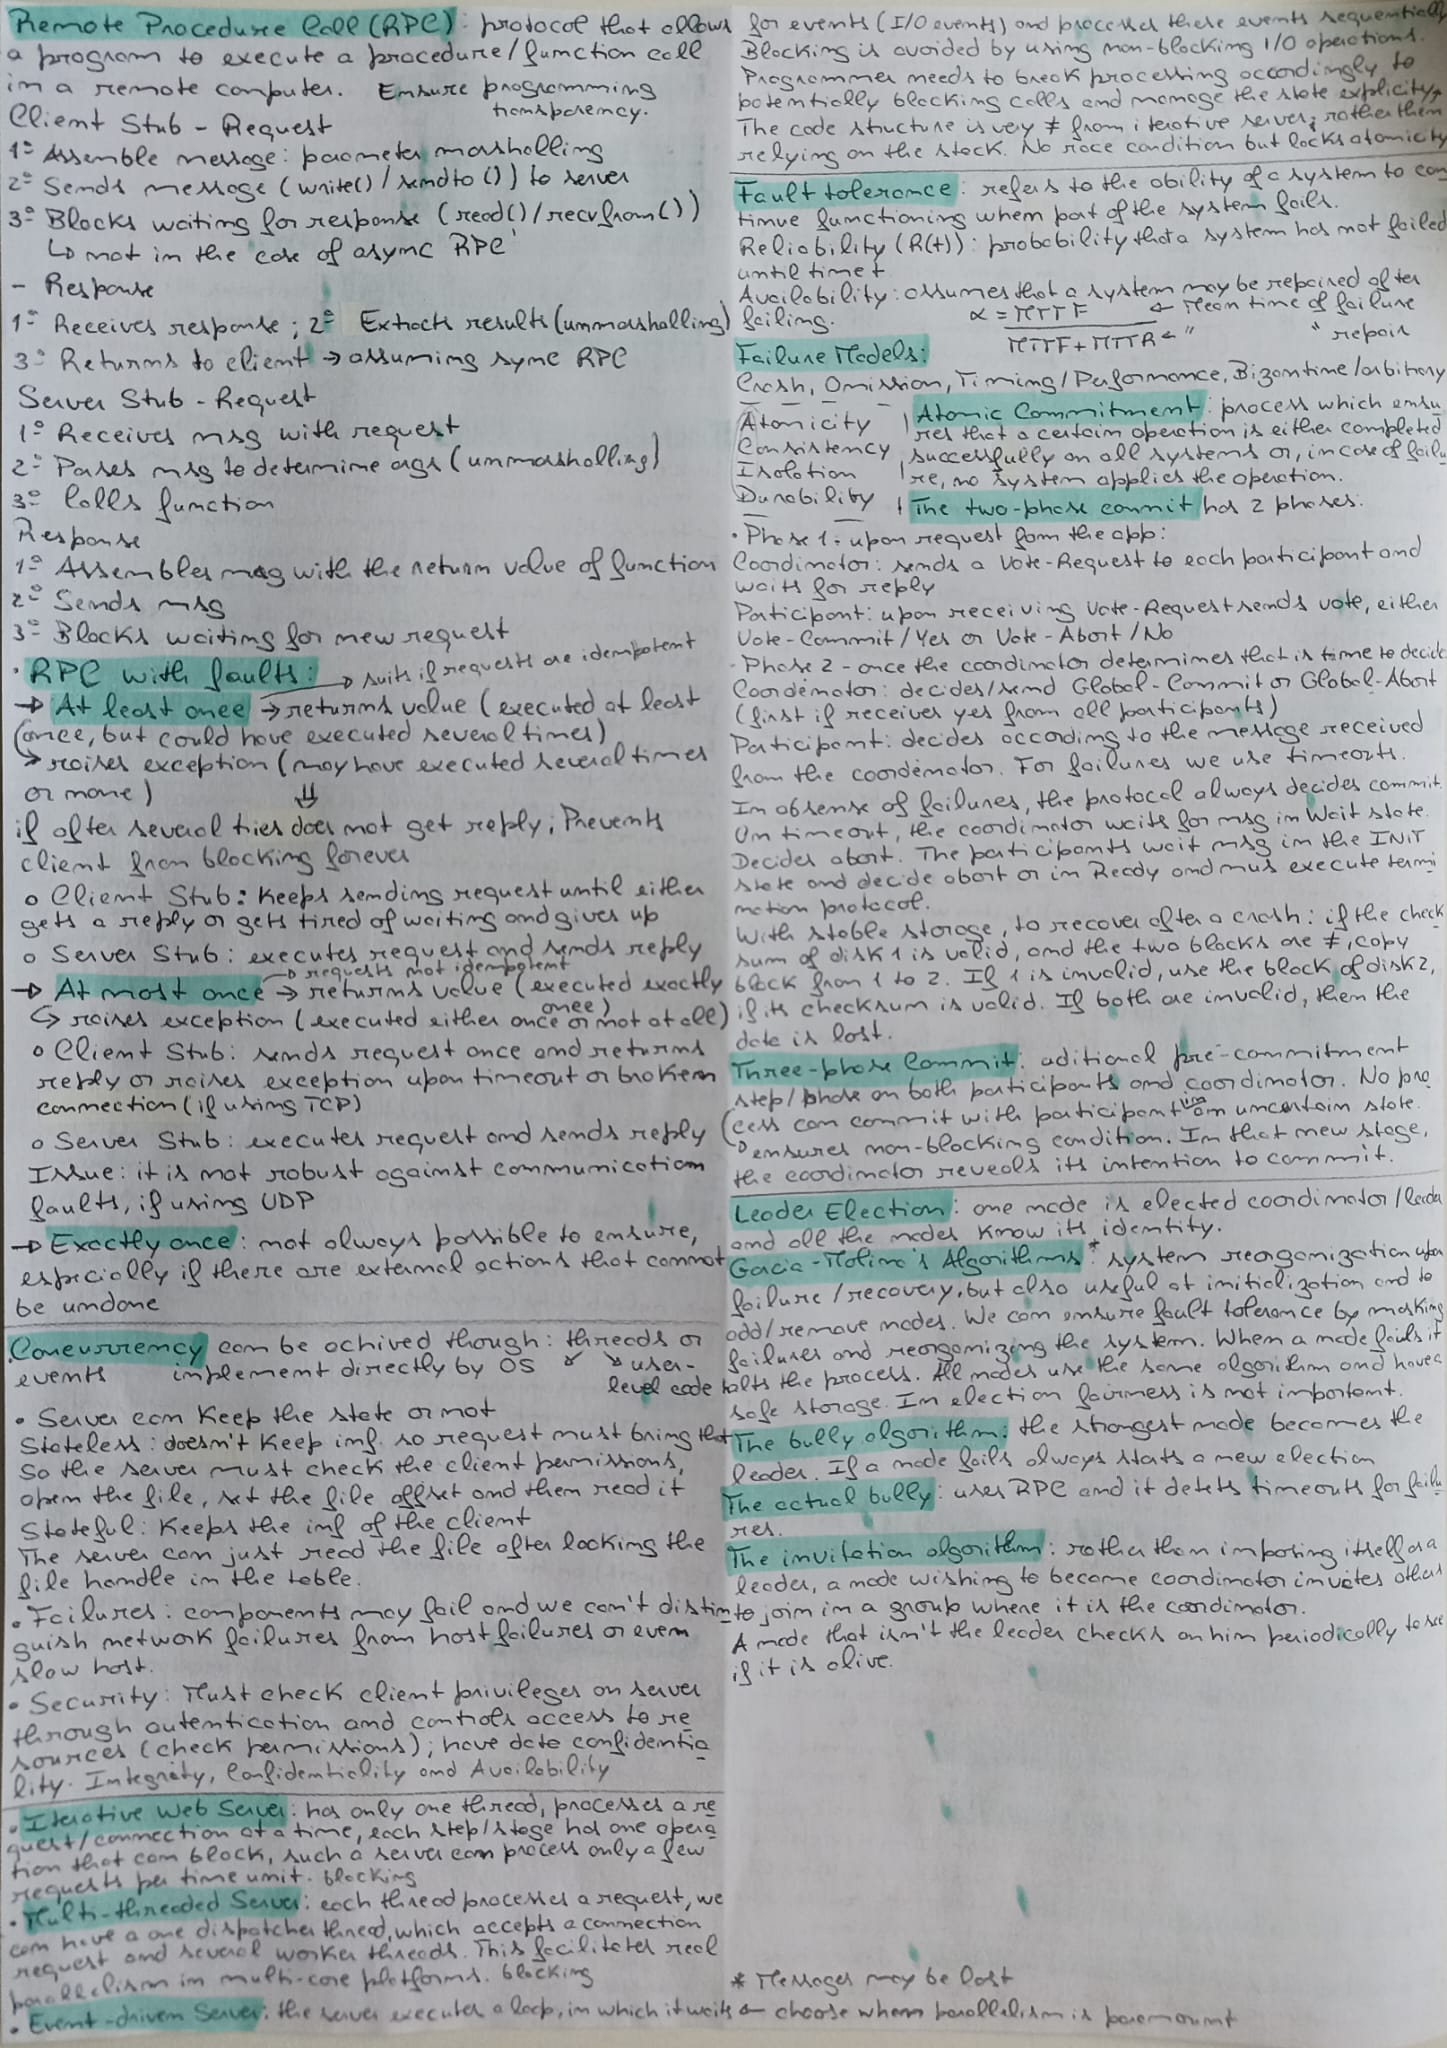 Remote Procedure Call (RPC): protocol that allows
a program to execute a procedure/function call
in a remote computer. Ensure programming
transparency.
Client Stub - Request
1º Assemble message: parameter marshalling
2º Sends message (write()/sendto()) to server
3º Blocks waiting for response (read()/recvfrom())
↳ not in the case of async RPC
- Response
1º Receives response; 2º Extracts results (unmarshalling)
3º Returns to client → assuming sync RPC
Server Stub - Request
1º Receives msg with request
2º Parses msg to determine args (unmarshalling)
3º Calls function
Response
1º Assembles msg with the return value of function
2º Sends msg
3º Blocks waiting for new request
• RPC with faults: → suits if requests are idempotent
→ At least once → returns value (executed at least
once, but could have executed several times)
↳ raises exception (may have executed several times
or none) ⇓
if after several tries does not get reply; Prevents
client from blocking forever
o Client Stub: Keeps sending request until either
gets a reply or gets tired of waiting and gives up
o Server Stub: executes request and sends reply
→ requests not idempotent
→ At most once → returns value (executed exactly
once)
↳ raises exception (executed either once or not at all)
o Client Stub: sends request once and returns
reply or raises exception upon timeout or broken
connection (if using TCP)
o Server Stub: executes request and sends reply
Issue: it is not robust against communication
faults, if using UDP
→ Exactly once: not always possible to ensure,
especially if there are external actions that cannot
be undone
Concurrency can be achived though: threads or
events implement directly by OS ↙ ↘ user-
level code
• Server can Keep the state or not
Stateless: doesn't Keep inf. so request must bring that
So the server must check the client permissions,
open the file, set the file offset and then read it
Stateful: Keeps the inf of the client
The server can just read the file after looking the
file handle in the table.
• Failures: components may fail and we can't distin
guish network failures from host failures or even
slow host.
• Security: Must check client privileges on server
through autentication and controls access to re
sources (check permissions); have data confidentia
lity. Integraty, Confidentiality and Availability
• Iterative Web Server: has only one thread, processes a re
quest/connection at a time, each step/stage has one opera
tion that can block, such a server can process only a few
requests per time unit. blocking
• Multi-threaded Server: each thread processes a request, we
can have a one dispatcher thread, which accepts a connection
request and several worker threads. This facilitates real
parallelism in multi-core platforms. blocking
• Event-driven Server: the server executes a loop, in which it waits
for events (I/O events) and processes these events sequentially
Blocking is avoided by using non-blocking I/O operations.
Programmer needs to break processing accordingly to
potentially blocking calls and manage the state explicity,
The code structure is very ≠ from iterative server; rather them
relying on the stack. No race condition but lacks atomicity
Fault tolerance: refers to the ability of a system to con
tinue functioning when part of the system fails.
Reliability (R(t)): probability that a system has not failed
until time t
Availability: assumes that a system may be repaired after
failing. α = MTTF ← Mean time of failure
MTTF+MTTR ← " " repair
Failure Models:
Crash, Omission, Timing/Performance, Bizantine/arbitrary
Atomicity
Consistency
Isolation
Durability
Atomic Commitment: process which ensu
res that a certain operation is either completed
successfully on all systems or, in case of failu
re, no system applies the operation.
The two-phase commit has 2 phases:
• Phase 1: upon request from the app:
Coordinator: sends a Vote-Request to each participant and
waits for reply
Participant: upon receiving Vote-Request sends vote, either
Vote-Commit/Yes or Vote-Abort/No
- Phase 2 - once the coordinator determines that is time to decide
Coordenator: decides/send Global-Commit or Global-Abort
(first if receives yes from all participants)
Participant: decides according to the message received
from the coordenator. For failures we use timeouts.
In absense of failures, the protocol always decides commit.
On timeout, the coordinator waits for msg in Wait state.
Decides abort. The participants wait msg in the INIT
state and decide abort or in Ready and mus execute termi
nation protocol.
With stable storage, to recover after a crash: if the check
sum of disk 1 is valid, and the two blocks are ≠, copy
block from 1 to 2. If 1 is invalid, use the block of disk 2,
if its checksum is valid. If both are invalid, then the
data is lost.
Three-phase Commit: aditional pre-commitment
step/phase on both participants and coordinator. No pro
cess can commit with participant in an uncertain state.
↳ ensures non-blocking condition. In that new stage,
the coordinator reveals its intention to commit.
Leader Election: one node is elected coordinator/leader
and all the nodes know its identity.
Garcia-Molina's Algorithms*: system reorganization upon
failure/recovery, but also useful at initialization and to
add/remove nodes. We can ensure fault tolerance by masking
failures and reorganizing the system. When a node fails it
halts the process. All nodes use the same algorithm and have a
safe storage. In election fairness is not important.
The bully algorithm: the strongest node becomes the
leader. If a node fails always starts a new election
The actual bully: uses RPC and it detets timeouts for failu
res.
The invitation algorithm: rather than imposing itself as a
leader, a node wishing to become coordinator invites others
to join in a group where it is the coordinator.
A node that isn't the leader checks on him periodically to see
if it is alive.
* Messages may be lost
← choose when parallelism is paramount